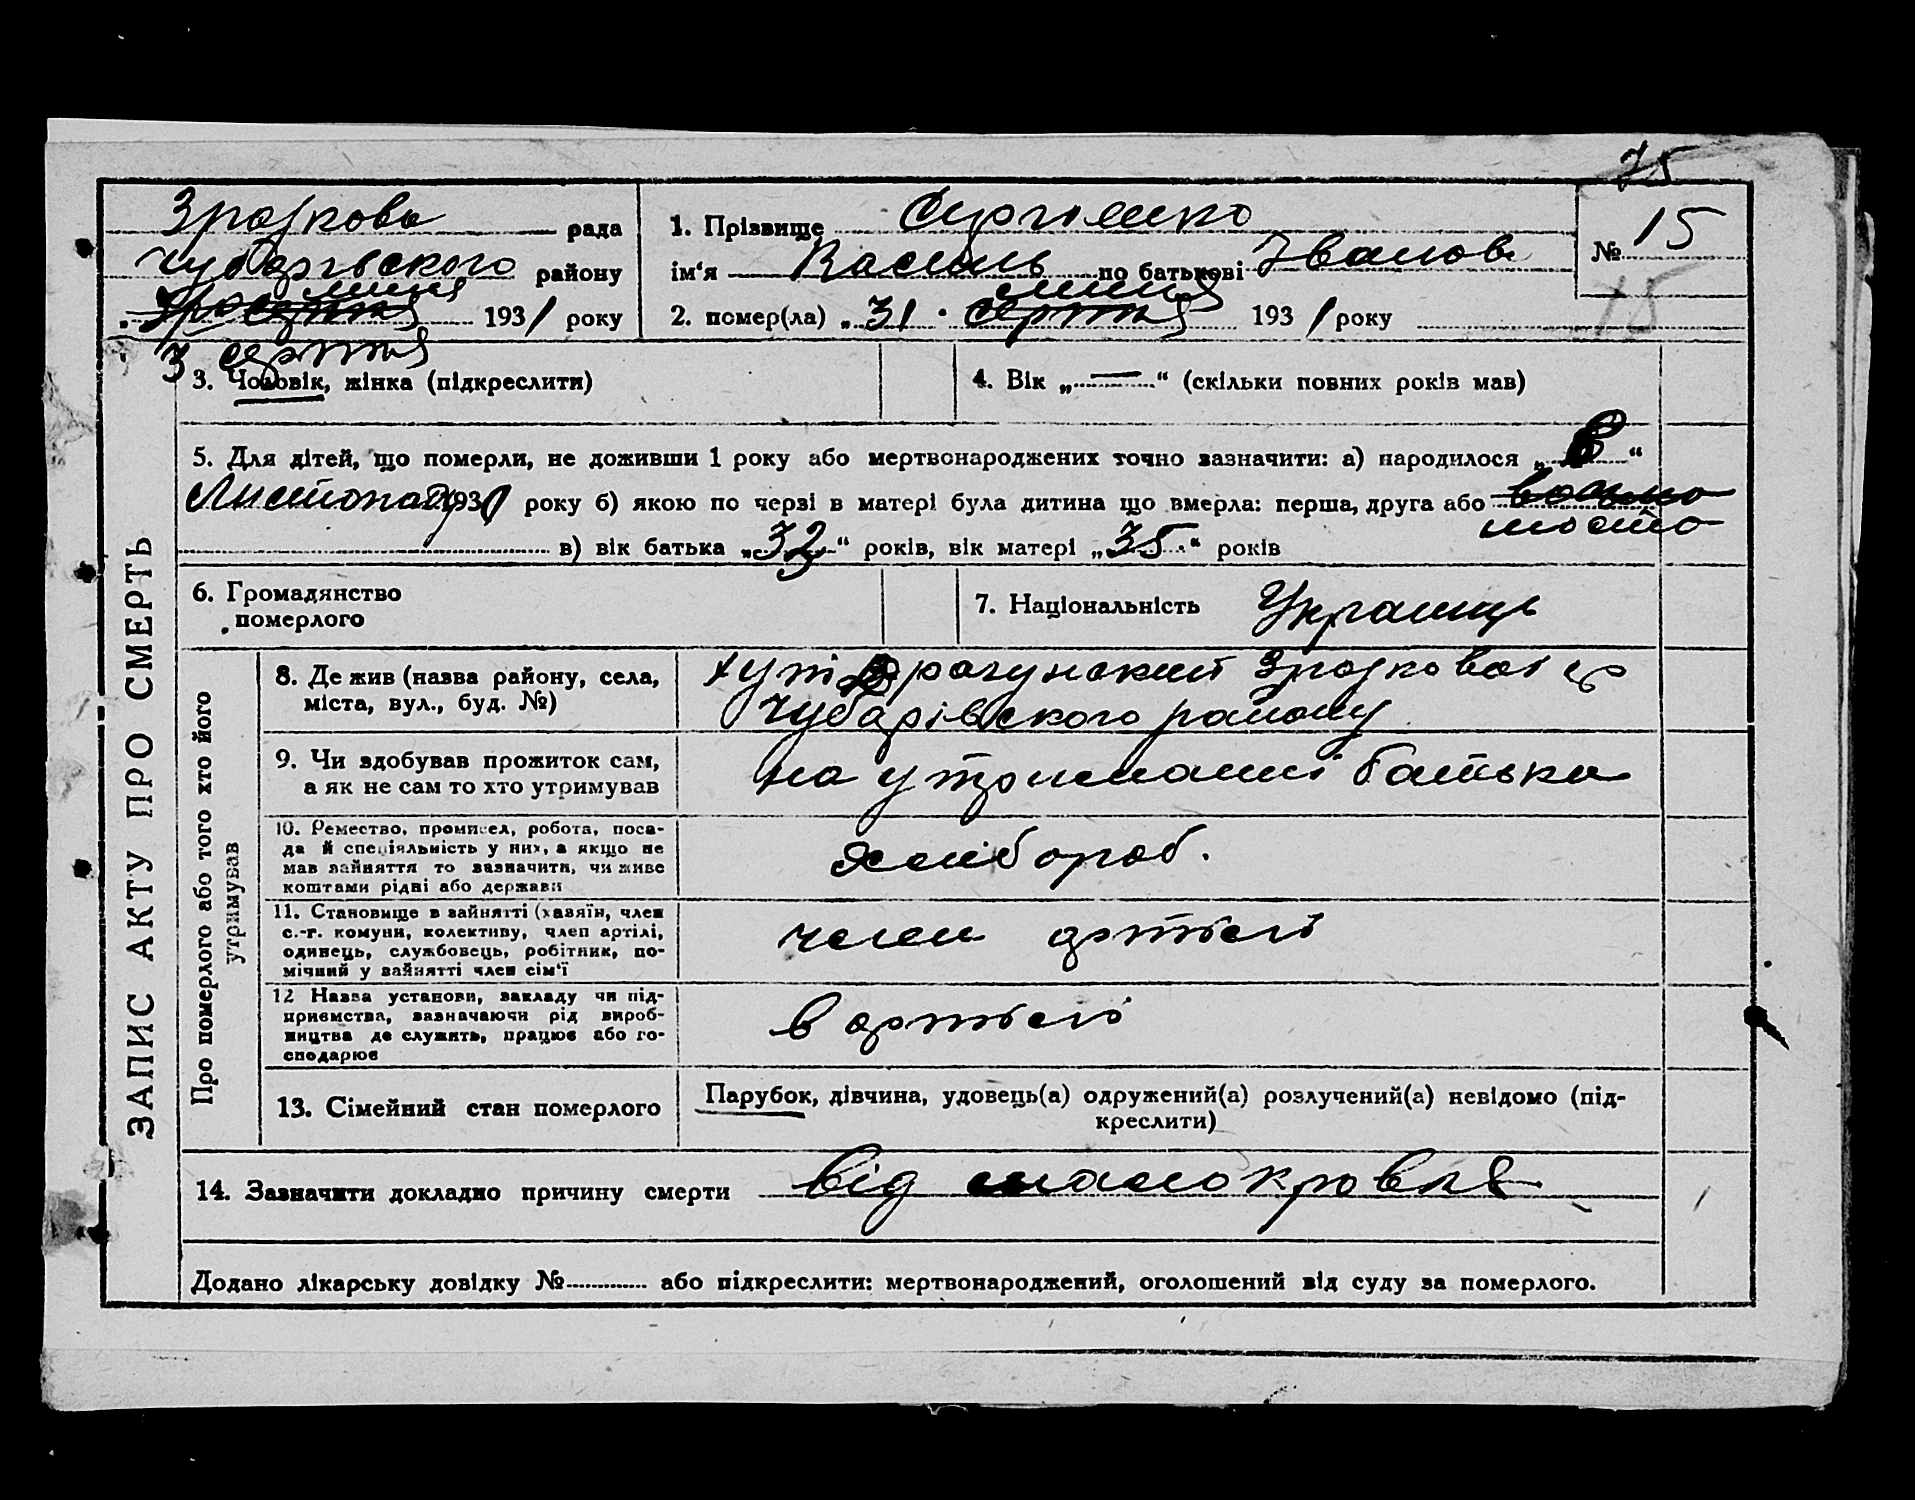 75
Зразкова рада
Чубарівського району
193 1 року
3 серпня
1. Прізвище Сергієнко
ім'я Василь по батькові Іванов.
2. помер(ла) „ 31 " липня серпня 193 1 року
№ 15
15
ЗАПИС АКТУ ПРО СМЕРТЬ
3. Чоловік, жінка (підкреслити)
4. Вік „ — “ (скільки повних років мав)
5. Для дітей, що померли, не доживши 1 року або мертвонароджених точно зазначити: а) народилося „ “
Листопада 193 року б) якою по черзі в матері була дитина що вмерла: перша, друга або
шоста
в) вік батька „ 32 “ років, вік матері „ 35 “ років
6. Громадянство
померлого
7. Національність Українець
Про померлого або того хто його
утримував
8. Де жив (назва району, села,
міста, вул., буд. №)
хут. Зразкової с/р
Чубарівського району
9. Чи здобував прожиток сам,
а як не сам то хто утримував
на утриманні батька
10. Ремество, промисел, робота, поса-
да й спеціяльність у них, а якщо не
мав зайняття то зазначити, чи живе
коштами рідні або держави
хлібороб.
11. Становище в зайнятті (хазяїн, член
с.-г. комуни, колективу, член артілі,
одинець, службовець, робітник, по-
мічний у зайнятті член сім'ї
член артілі
12 Назва установи, закладу чи під-
приємства, зазначаючи рід вироб-
ництва де служить, працює або го-
сподарює
в артілі
13. Сімейний стан померлого
Парубок, дівчина, удовець(а) одружений(а) розлучений(а) невідомо (під-
креслити)
14. Зазначити докладно причину смерти від малокровля
Додано лікарську довідку № або підкреслити: мертвонароджений, оголошений від суду за померлого.